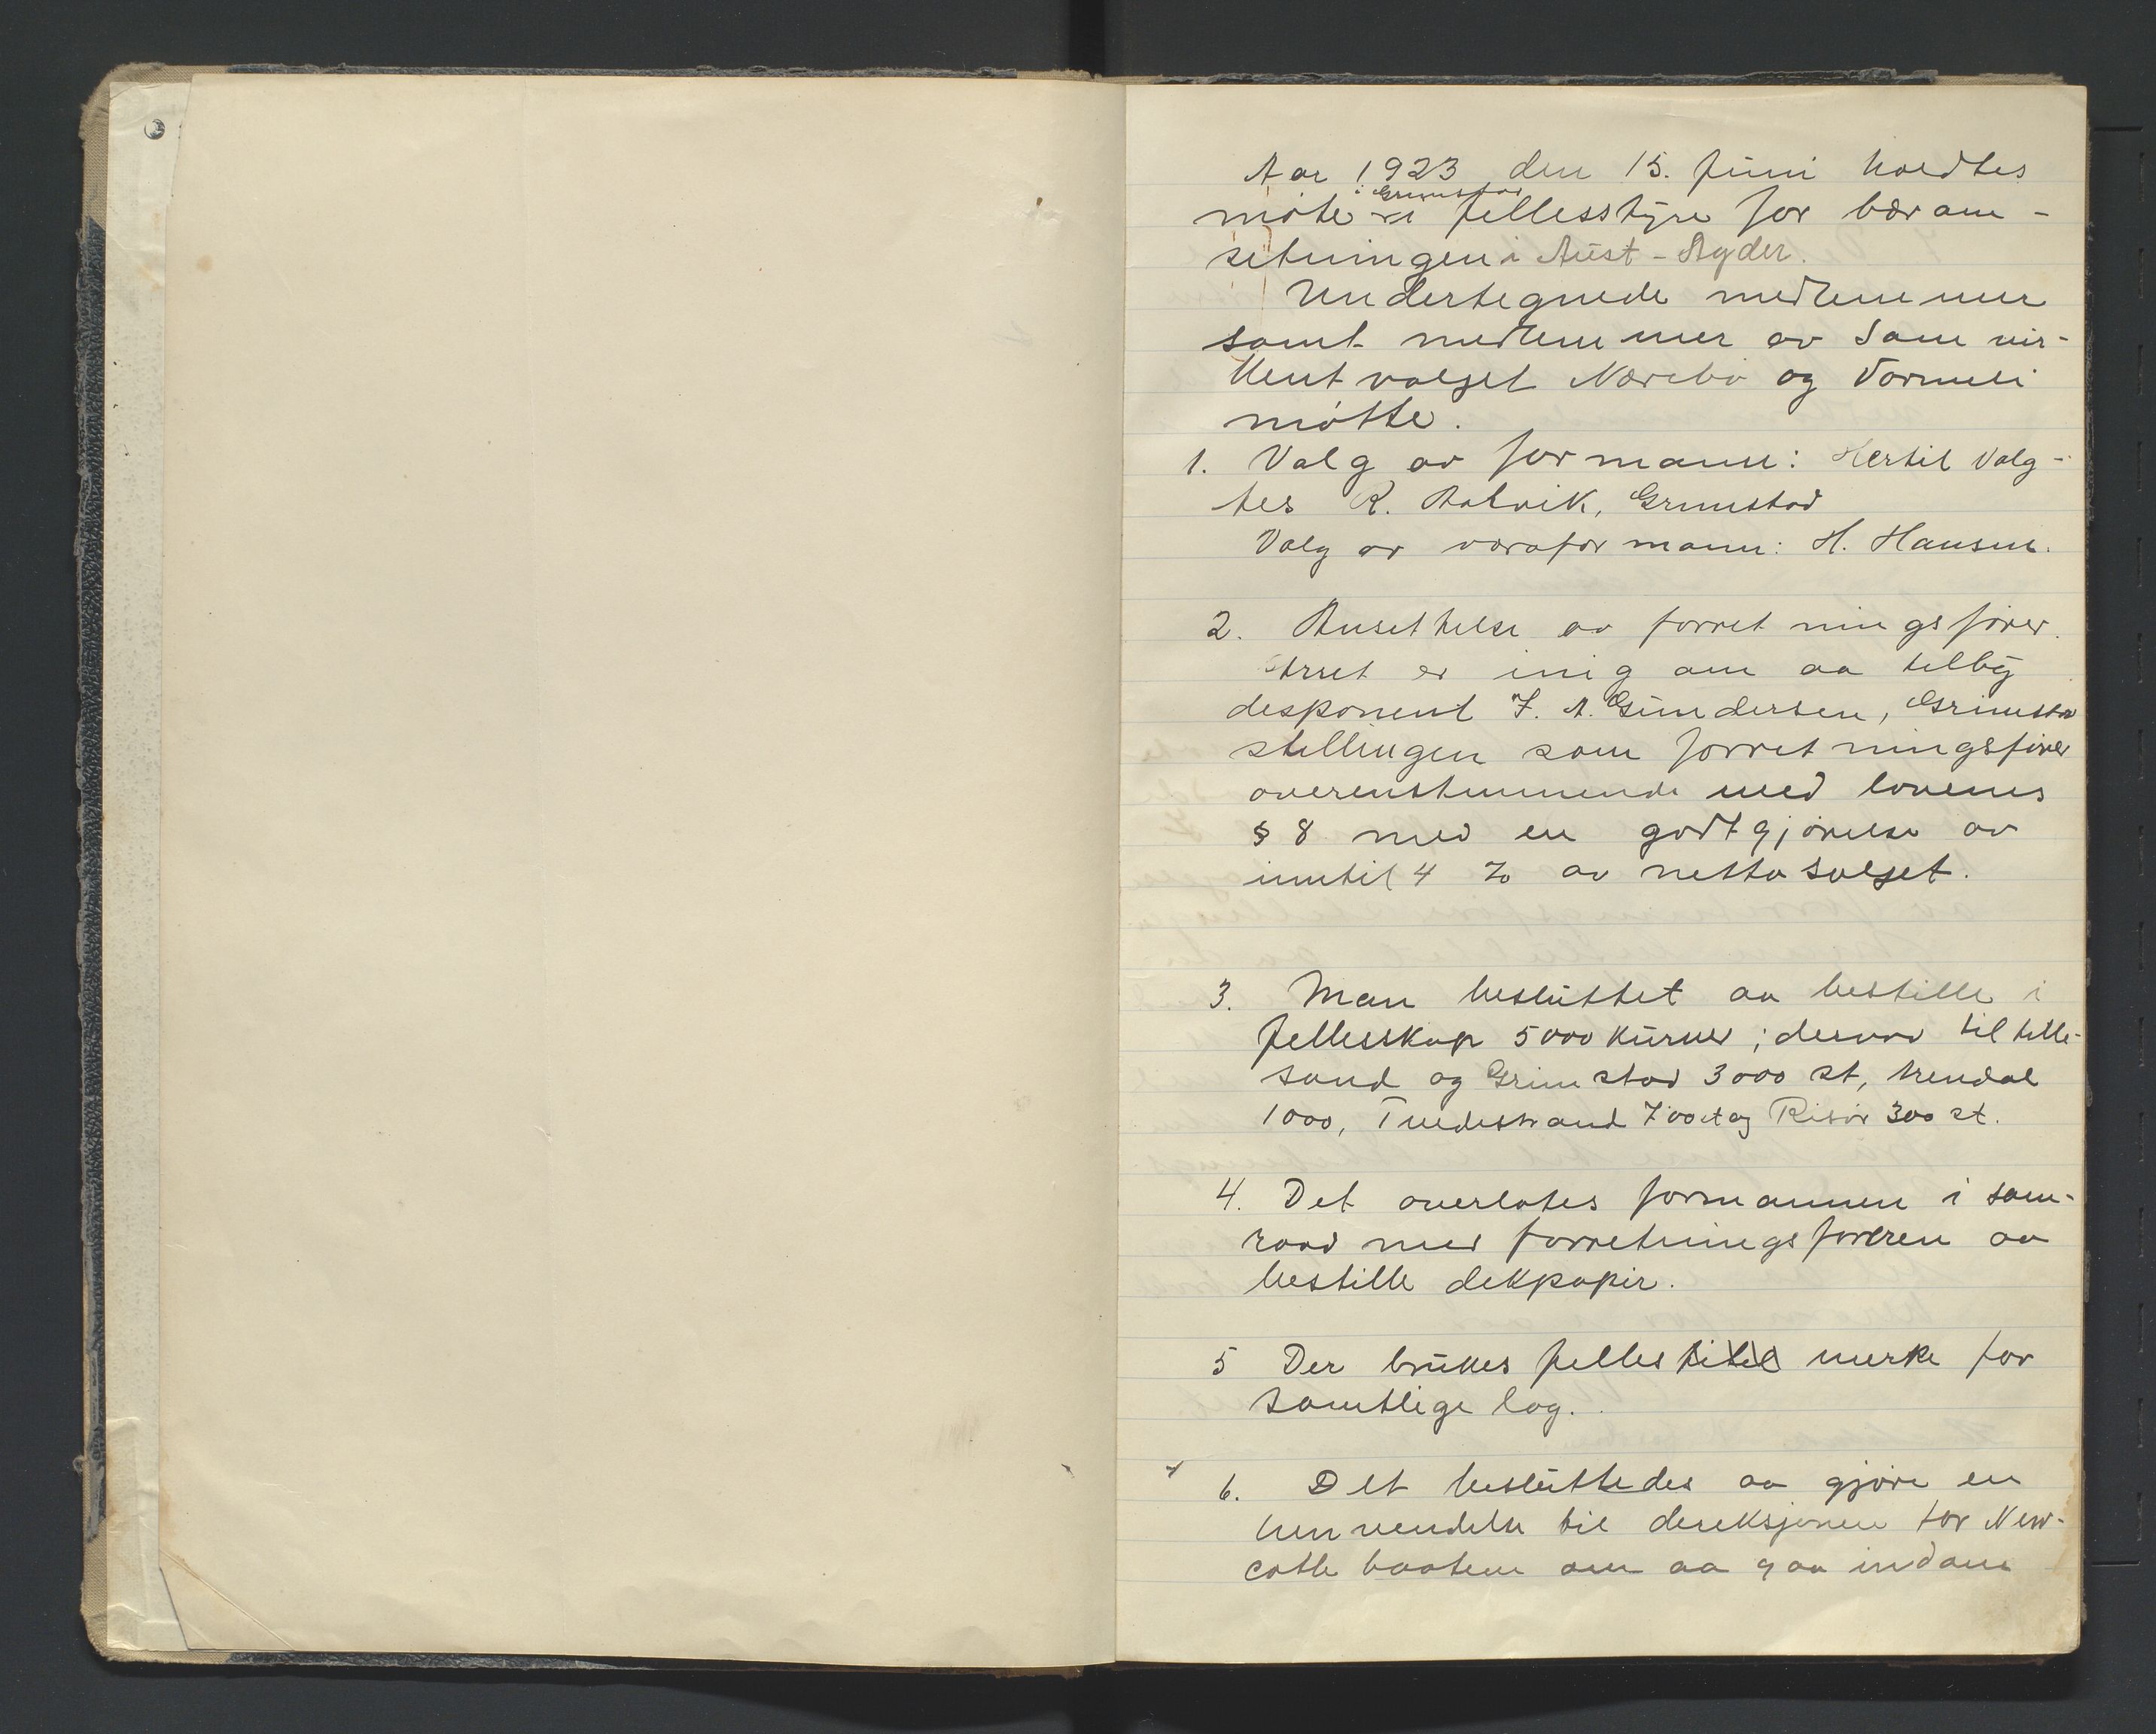 Aar 1923 den 15. juni holdtes
i Grimstad
møte i fellesstyre for bærom-
setningen i Aust-Agder.
Undertegnede medlemmer
samt medlemmer av Sam vir-
kent valget Nærebø og Vormeli
møtte.
1. Valg av formann: Hertil valg-
tes R. Dalvik, Grimstad
Valg av varaformann: H. Hansen.
2. Ansettelse av forretningsfører.
Styret er enig om aa tilby
disponent J. A. Gundersen, Grimstad
stillingen som forretningsfører
overenstemmende med lovenes
§ 8 med en godtgjørelse av
inntil 4 % av netto salget.
3. Man besluttet aa bestille i
fellesskap 5000 kurver; derav til Lille-
sand og Grimstad 3000 st, Arendal
1000, Tvedestrand 700 st og Risør 300 st.
4. Det overlates formannen i sam-
raad med forretningsføreren aa
bestille dekpapir.
5 Der brukes felles titel merke for
samtlige lag.
6. Det besluttedes aa gjøre en
henvendelse til direksjonen for New-
catle baatene om aa gaa indom